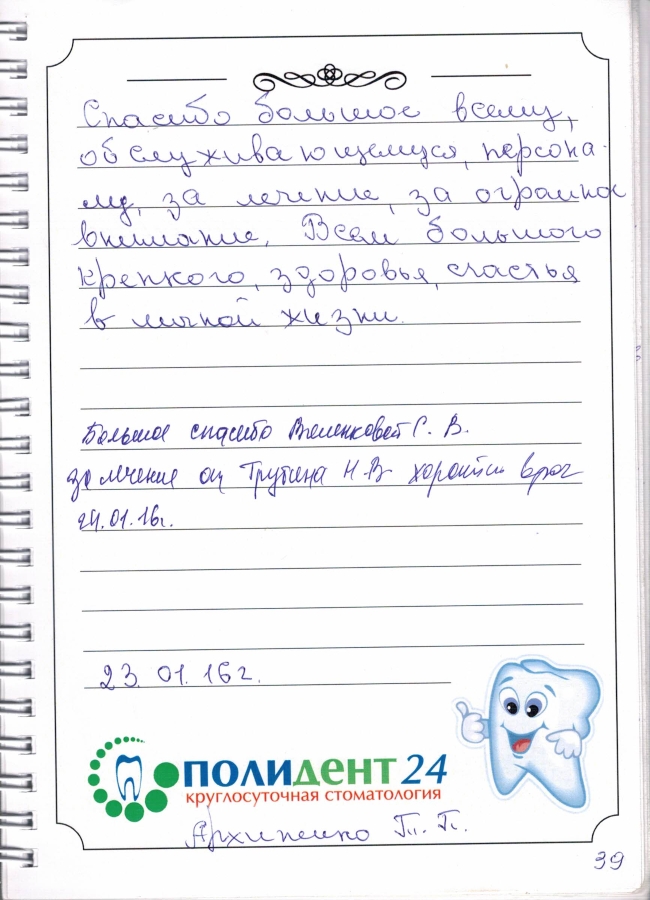 Спасибо большое всему,
обслуживающемуся, персона-
лу, за лечение, за огромное
внимание. Всем большого
крепкого, здоровья, счастья
в личной жизни.
Большое спасибо С. В.
за лечение от Н.В. врач
24.01.16г.
23. 01. 16 г.
ПОЛИДЕНТ 24
круглосуточная стоматология
Архипенко П. П.
39